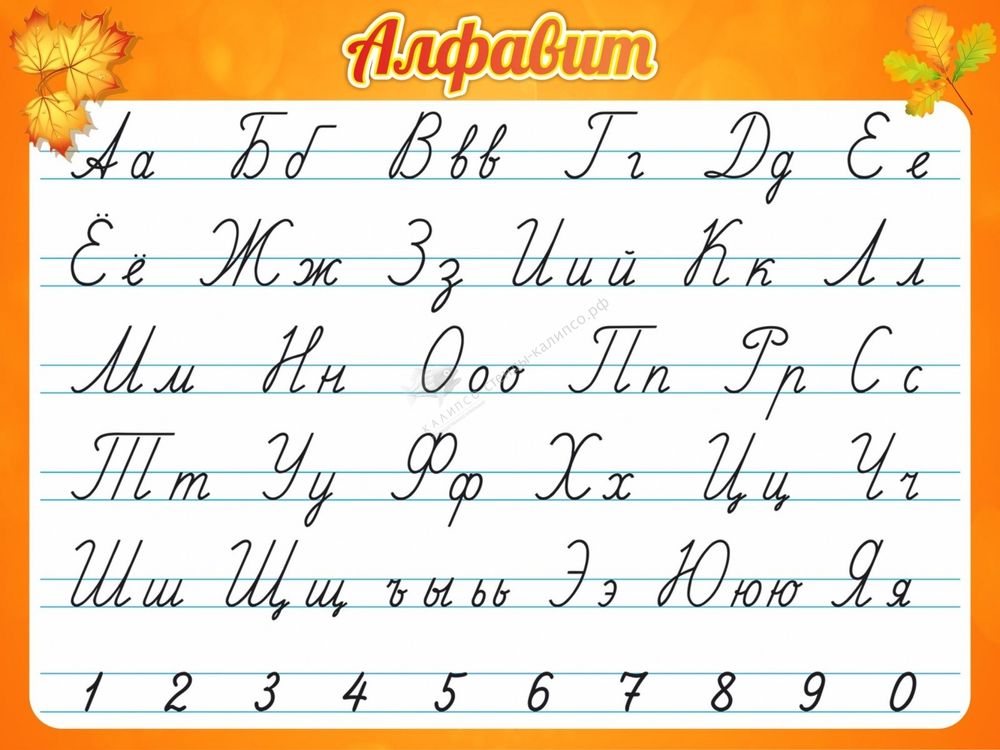 Алфавит
Аа Бб Ввв Гг Дд Ее
Ёё Жж Зз Иий Кк Лл
Мм Нн Ооо Пп Рр Сс
Тт Уу Фф Хх Цц Чч
Шш Щщ ъыьь Ээ Ююю Яя
1 2 3 4 5 6 7 8 9 0
стенды-калипсо.рф
калипсо